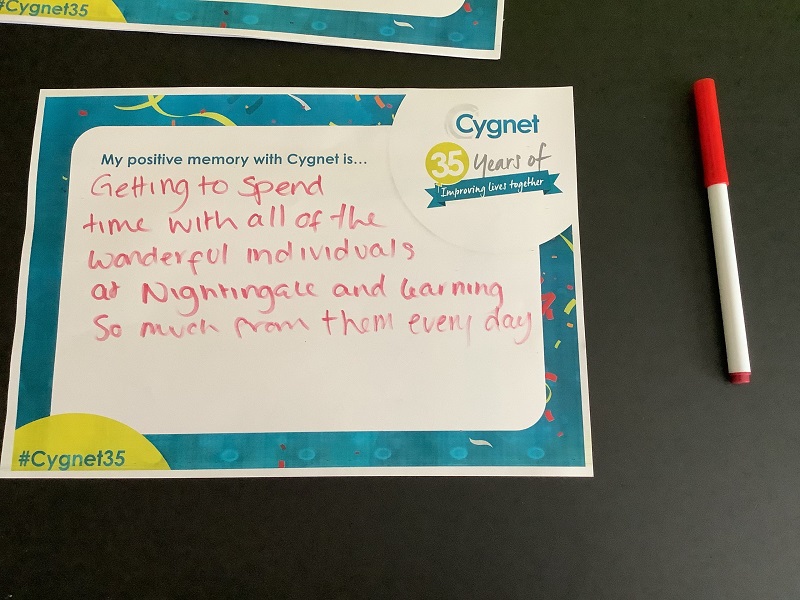 #Cygnet35
Cygnet
35 Years of
Improving lives together
My positive memory with Cygnet is...
Getting to spend
time with all of the
wonderful individuals
at Nightingale and learning
So much from them every day
#Cygnet35